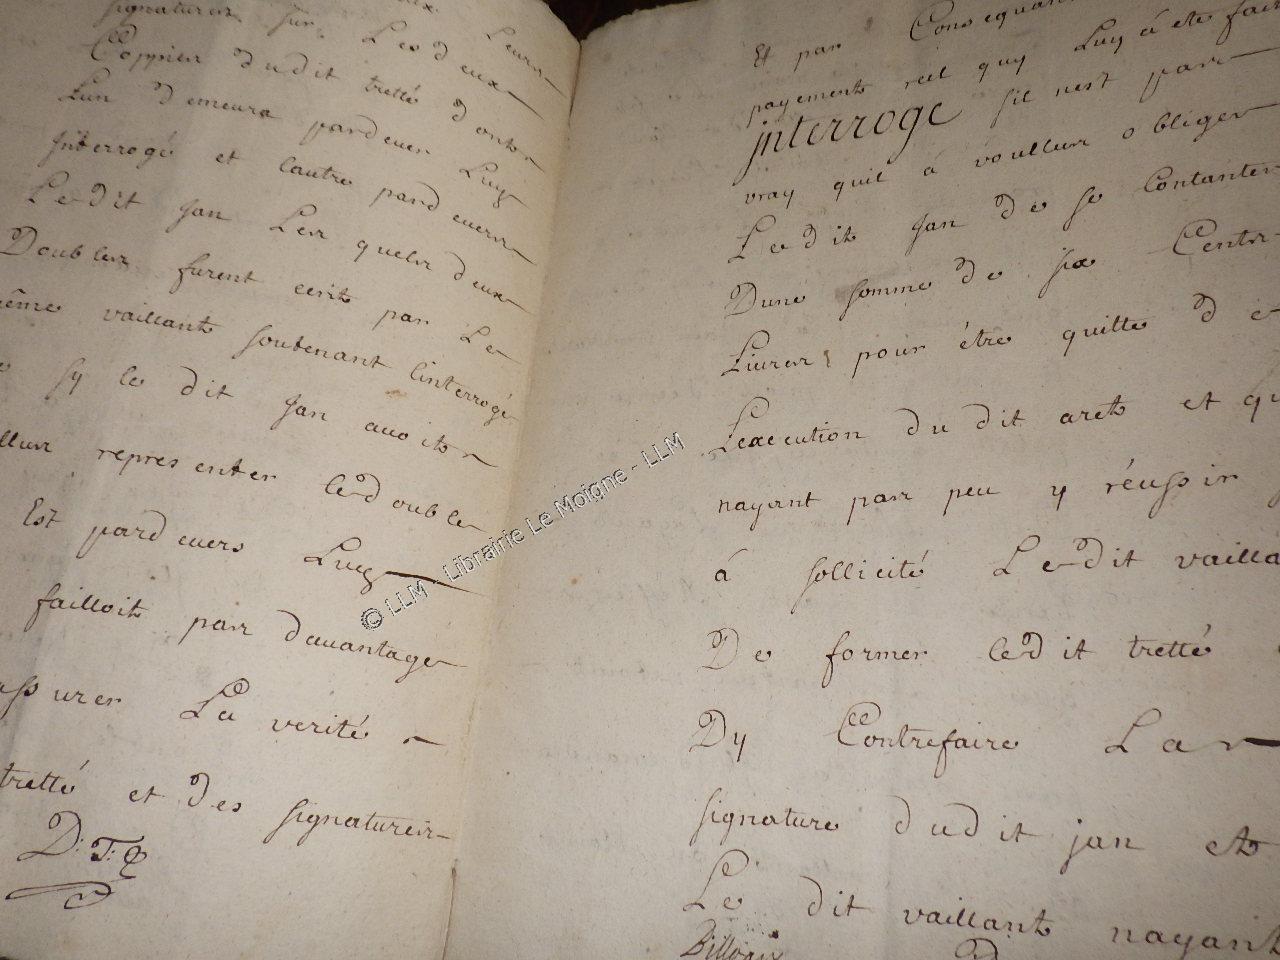 signatures sur Les d eux
Coppies dudit tretté d ont
Lun d emeura pard euers Luy
jnterrogé et lautre pard euers
Le dit jan Les quels d eux
Doubles furent ecrit par Le
même vaillant soutenant linterrogé
sy le dit jan auoit
repres enter led oub le
Est pard euers Luy
failloit pas dauantage
La verité
tretté et des signatures
D: T: Q
Et par
payement reel quy Luy à ete fait
jnterroge sil nest pas
vray quil à voullus obliger
Le dit jan de se Contanter
Dune somme de six Cents
Liures pour être quitte d e
Lexecution du dit aret et
nayant pas peu y réussir
á sollicité Le dit
De former led it tretté
Dy Contrefaire La
signature dudit jan et
Le dit vaillant nayant
© LLM - Librairie Le Moigne - LLM